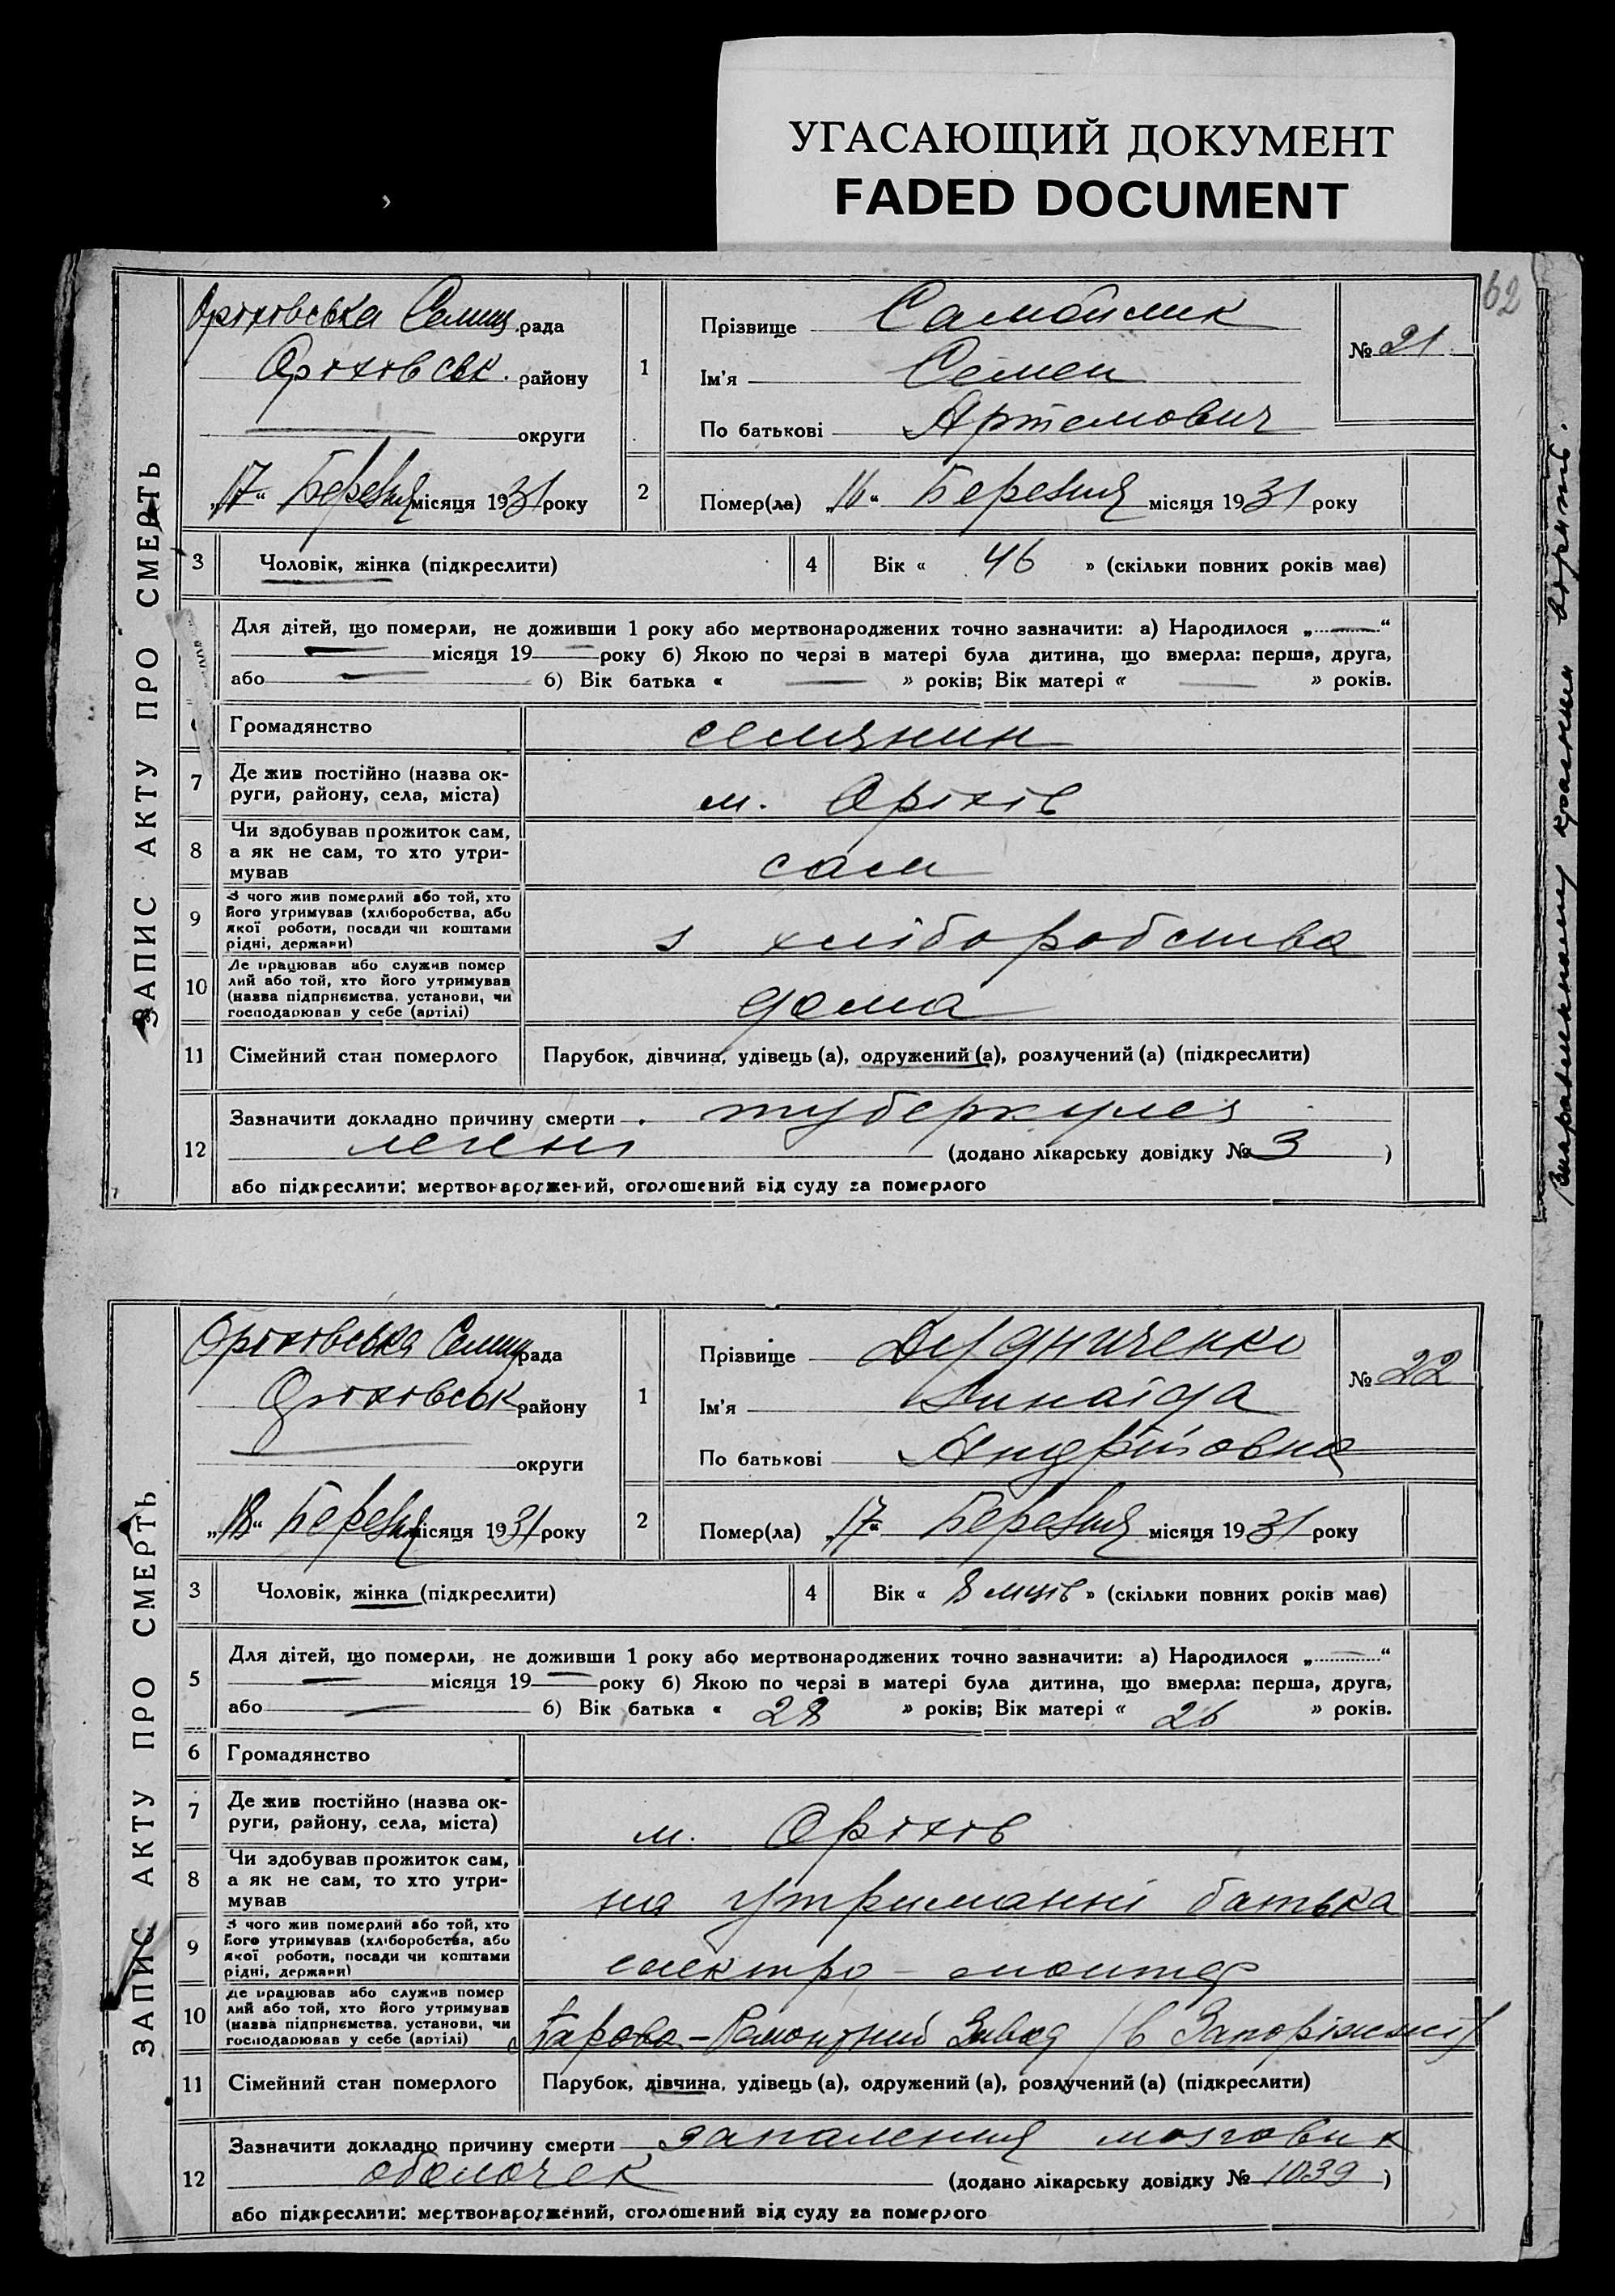 УГАСАЮЩИЙ ДОКУМЕНТ
FADED DOCUMENT
62
ЗАПИС АКТУ ПРО СМЕРТЬ
Оріхівська Селищ. рада
Оріхівськ. району
округи
„17“ Березня місяця 1931 року
1
Прізвище Самойлик
Ім'я Семен
По батькові Артемович
№ 21
2
Помер(ла) „16“ Березня місяця 1931 року
3
Чоловік, жінка (підкреслити)
4
Вік « 46 » (скільки повних років має)
Для дітей, що померли, не доживши 1 року або мертвонароджених точно зазначити: а) Народилося „ — “
— місяця 19 — року б) Якою по черзі в матері була дитина, що вмерла: перша, друга,
або — б) Вік батька « — » років; Вік матері « — » років.
Громадянство
селянин
7
Де жив постійно (назва ок-
руги, району, села, міста)
м. Оріхів
8
Чи здобував прожиток сам,
а як не сам, то хто утри-
мував
сам
9
З чого жив померлий або той, хто
його утримував (хліборобства, або
якої роботи, посади чи коштами
рідні, держави)
з хліборобства
10
Де працював або служив помер
лий або той, хто його утримував
(назва підприємства, установи, чи
господарював у себе (артілі)
дома
11
Сімейний стан померлого
Парубок, дівчина, удівець (а), одружений (а), розлучений (а) (підкреслити)
12
Зазначити докладно причину смерти туберкулез
легені (додано лікарську довідку № 3 )
або підкреслити: мертвонароджений, оголошений від суду за померлого
ЗАПИС АКТУ ПРО СМЕРТЬ
Оріхівська Селищ рада
Оріхівськ району
округи
„18“ Березня місяця 1931 року
1
Прізвище
Ім'я Зинаіда
По батькові Андріївна
№ 22
2
Помер(ла) „17“ Березня місяця 1931 року
3
Чоловік, жінка (підкреслити)
4
Вік « 8 мців » (скільки повних років має)
5
Для дітей, що померли, не доживши 1 року або мертвонароджених точно зазначити: а) Народилося „ — “
— місяця 19 — року б) Якою по черзі в матері була дитина, що вмерла: перша, друга,
або — б) Вік батька « 28 » років; Вік матері « 26 » років.
6
Громадянство
7
Де жив постійно (назва ок-
руги, району, села, міста)
м. Оріхів
8
Чи здобував прожиток сам,
а як не сам, то хто утри-
мував
на утриманні батька
9
З чого жив померлий або той, хто
його утримував (хліборобства, або
якої роботи, посади чи коштами
рідні, держави)
електро - монтер
10
Де працював або служив помер
лий або той, хто його утримував
(назва підприємства, установи, чи
господарював у себе (артілі)
Ремонтний Завод /в Запоріжжі/
11
Сімейний стан померлого
Парубок, дівчина, удівець (а), одружений (а), розлучений (а) (підкреслити)
12
Зазначити докладно причину смерти запалення мозгових
оболочек (додано лікарську довідку № 1039 )
або підкреслити: мертвонароджений, оголошений від суду за померлого